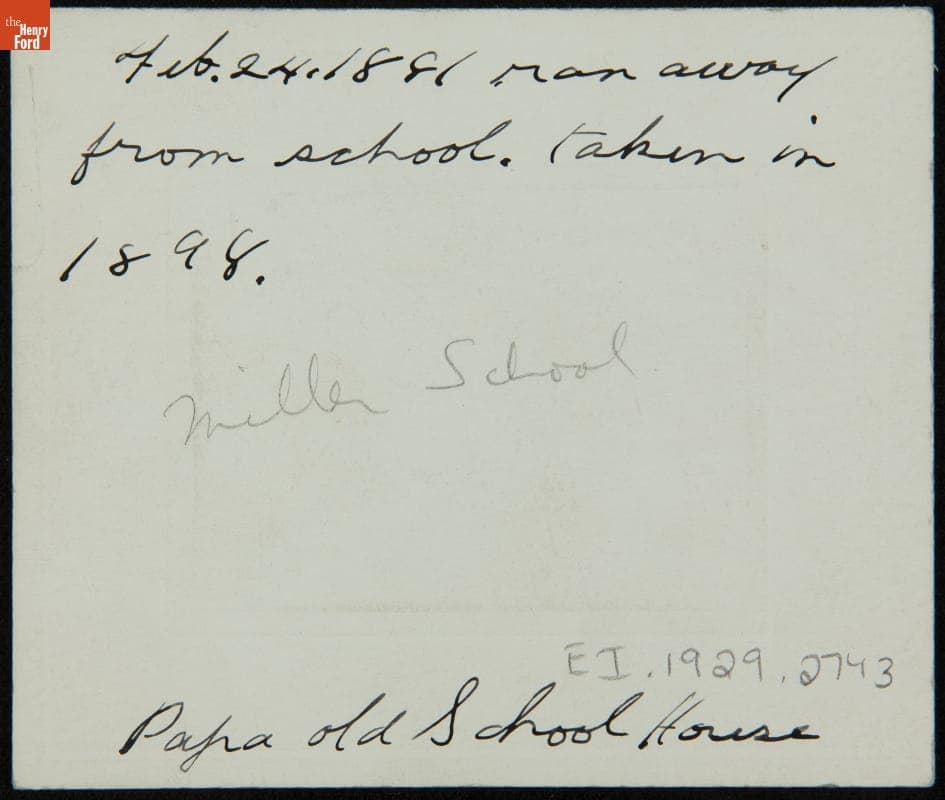 the
Henry
Ford
Feb. 24. 1881 ran away
from school. taken in
1898.
Miller School
EI.1929.2743
Papa old School House